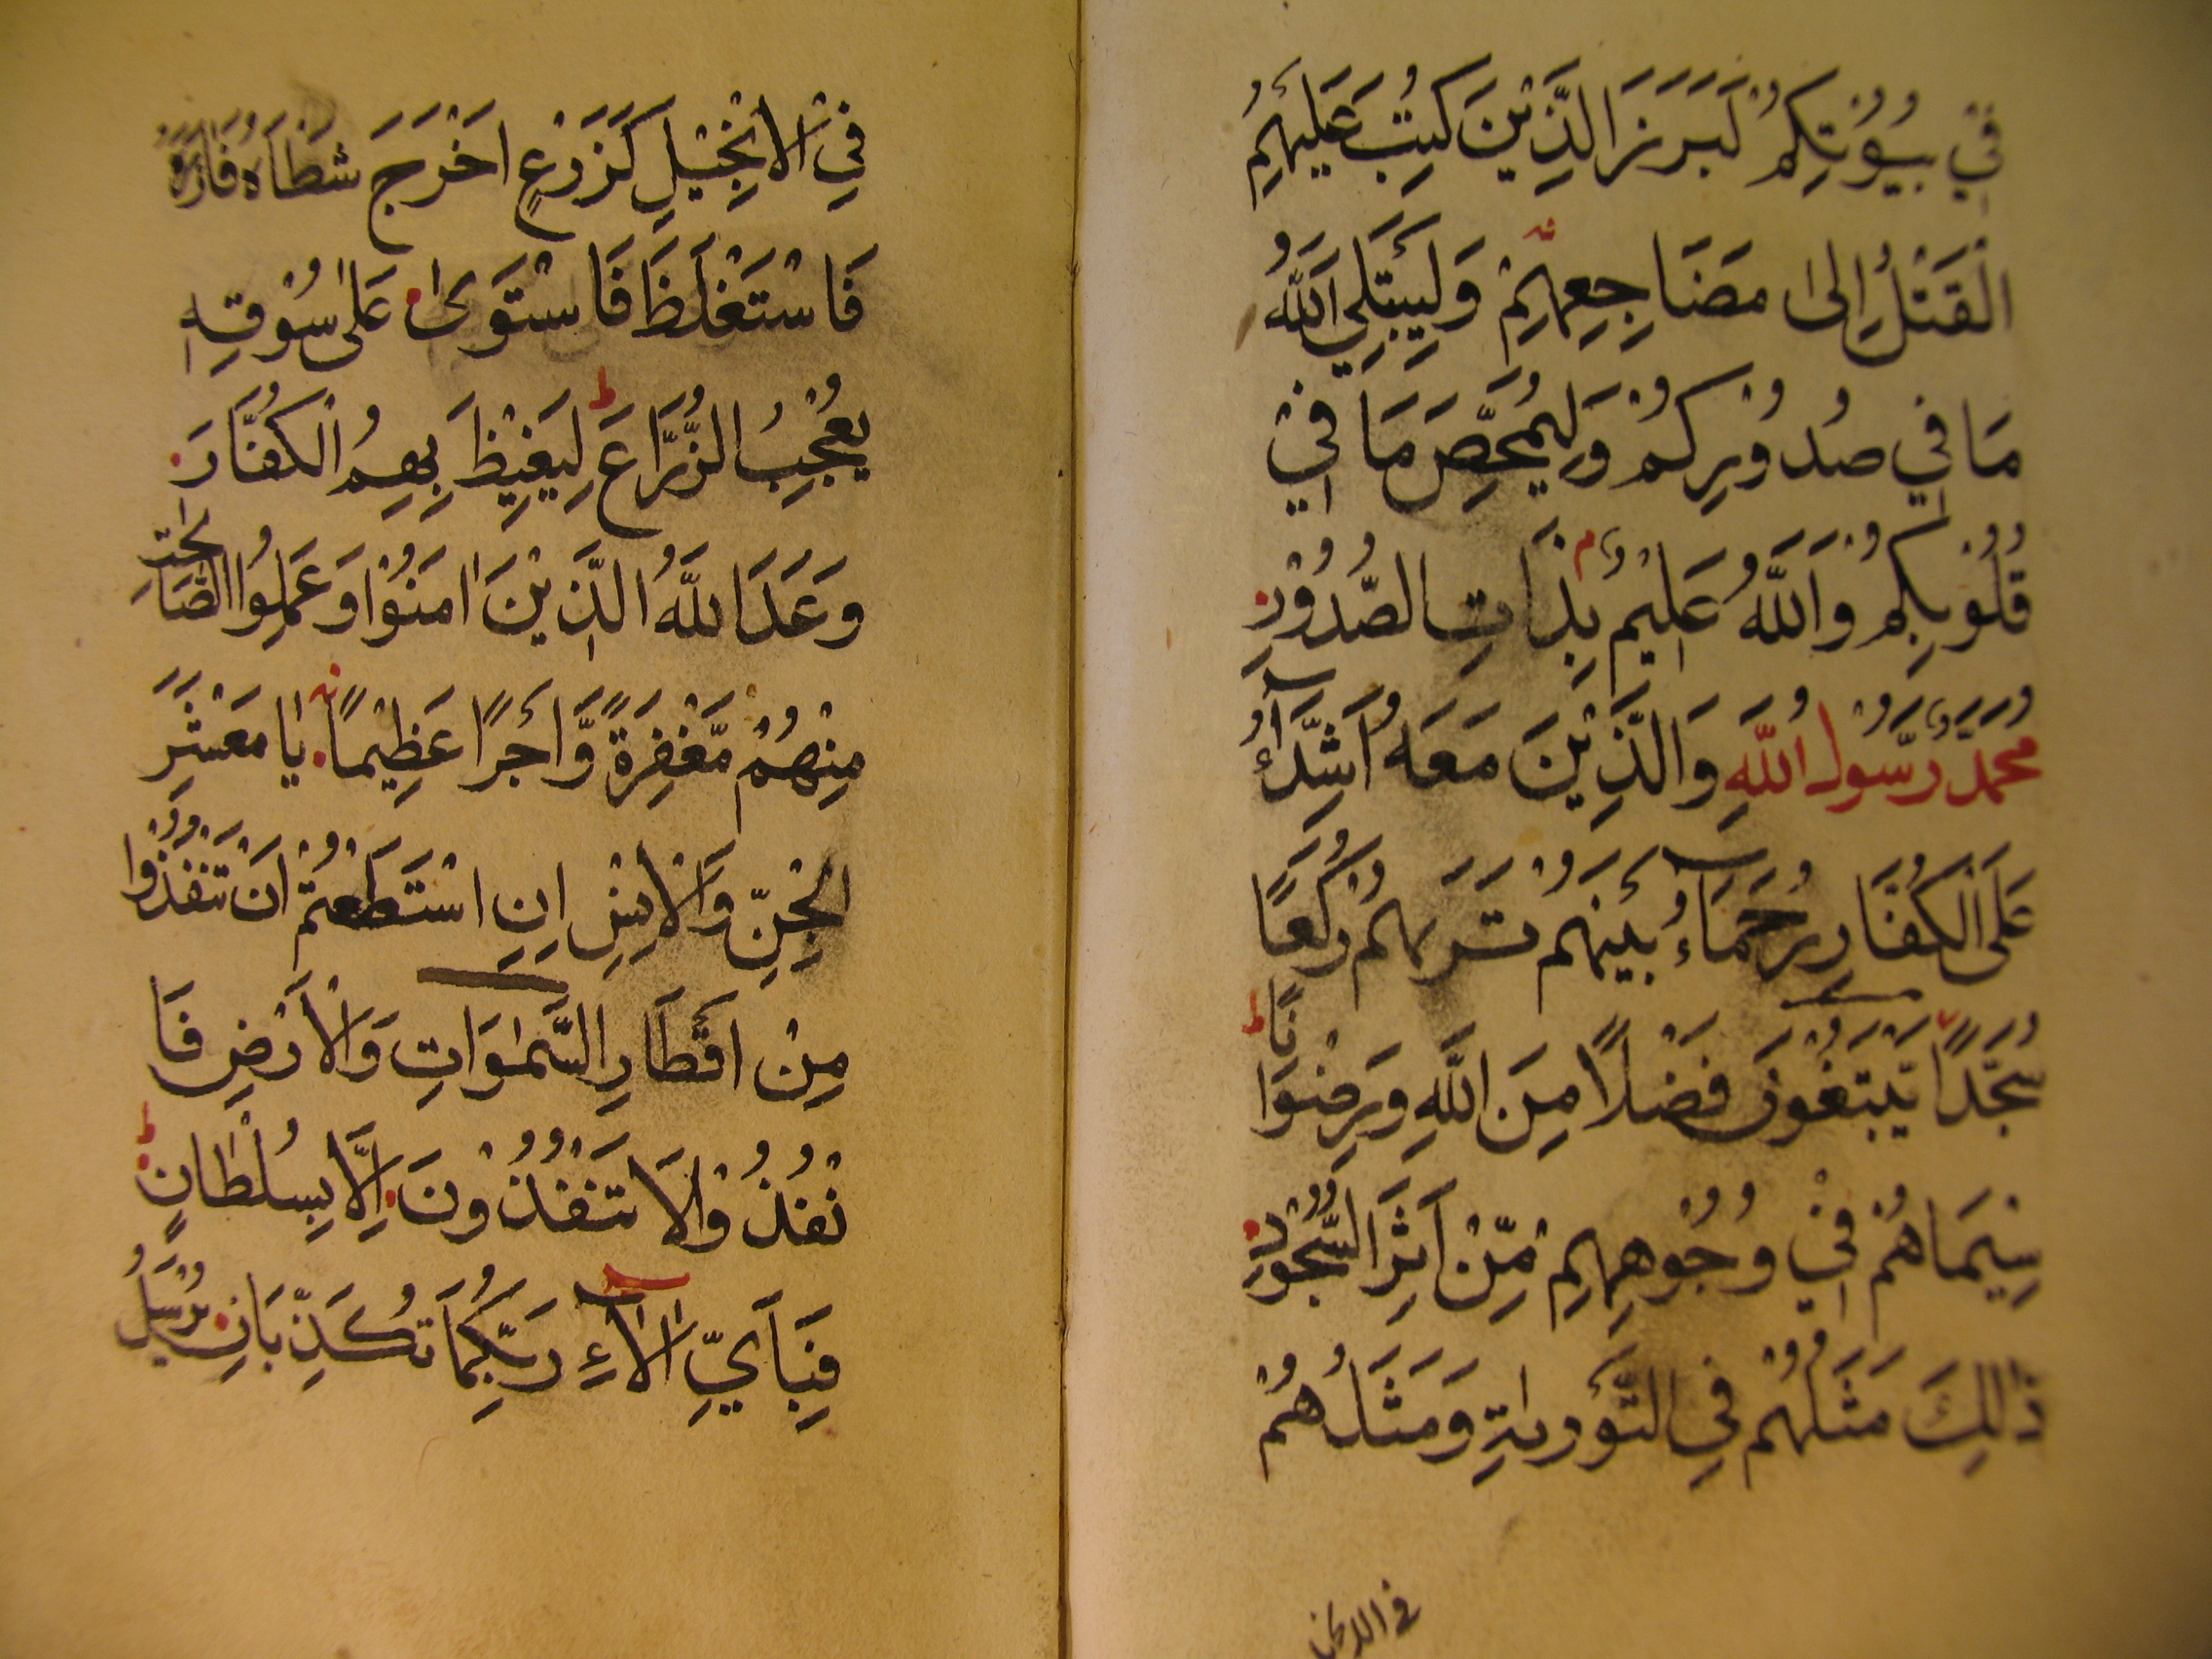 فِي بُيُوْتِكُمْ لَبَرَزَ الَّذِيْنَ كُتِبَ عَلَيْهِمُ
الْقَتْلُ اِلٰى مَضَاجِعِهِمْ وَلِيَبْتَلِيَ اللّٰهُ
مَا فِي صُدُوْرِكُمْ وَلِيُمَحِّصَ مَا فِيْ
قُلُوْبِكُمْ وَاللّٰهُ عَلِيْمٌ بِذَاتِ الصُّدُوْرِ
مُحَمَّدٌ رَّسُوْلُ اللّٰهِ وَالَّذِيْنَ مَعَهُ اَشِدَّآءُ
عَلَى الْكُفَّارِ رُحَمَآءُ بَيْنَهُمْ تَرٰىهُمْ رُكَّعًا
سُجَّدًا يَّبْتَغُوْنَ فَضْلًا مِنَ اللّٰهِ وَرِضْوَانًا
سِيْمَاهُمْ فِيْ وُجُوْهِهِمْ مِّنْ اَثَرِ السُّجُوْدِ
ذٰلِكَ مَثَلُهُمْ فِي التَّوْرٰىةِ وَمَثَلُهُمْ
فِي الْاِنْجِيْلِ كَزَرْعٍ اَخْرَجَ شَطْأَهُ فَاٰزَرَهُ
فَاسْتَغْلَظَ فَاسْتَوٰى عَلٰى سُوْقِهٖ
يُعْجِبُ الزُّرَّاعَ لِيَغِيْظَ بِهِمُ الْكُفَّارَ
وَعَدَ اللّٰهُ الَّذِيْنَ اٰمَنُوْا وَعَمِلُوا الصَّالِحٰتِ
مِنْهُمْ مَّغْفِرَةً وَّاَجْرًا عَظِيْمًا يَا مَعْشَرَ
الْجِنِّ وَالْاِنْسِ اِنِ اسْتَطَعْتُمْ اَنْ تَنْفُذُوْا
مِنْ اَقْطَارِ السَّمٰوَاتِ وَالْاَرْضِ فَا
نْفُذُوْا لَا تَنْفُذُوْنَ اِلَّا بِسُلْطَانٍ
فَبِاَيِّ اٰلَاۤءِ رَبِّكُمَا تُكَذِّبَانِ يُرْسَلُ